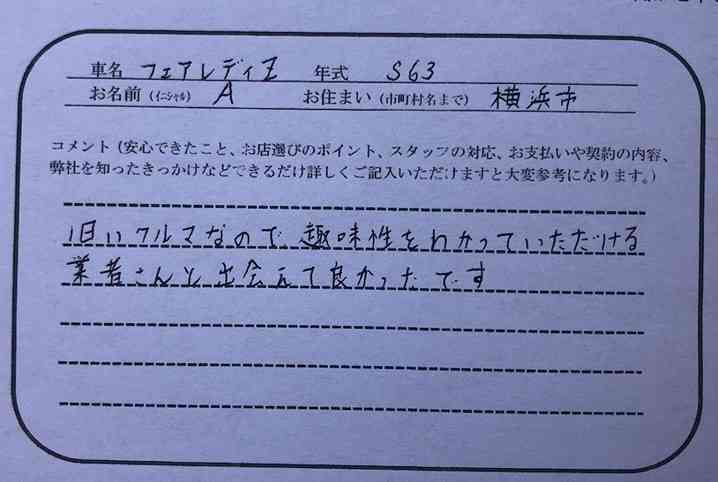 車名 フェアレディZ 年式 S63
お名前（イニシャル） A お住まい（市町村名まで） 横浜市
コメント（安心できたこと、お店選びのポイント、スタッフの対応、お支払いや契約の内容、
弊社を知ったきっかけなどできるだけ詳しくご記入いただけますと大変参考になります。）
旧いクルマなので趣味性をわかっていただける
業者さんと出会えて良かったです